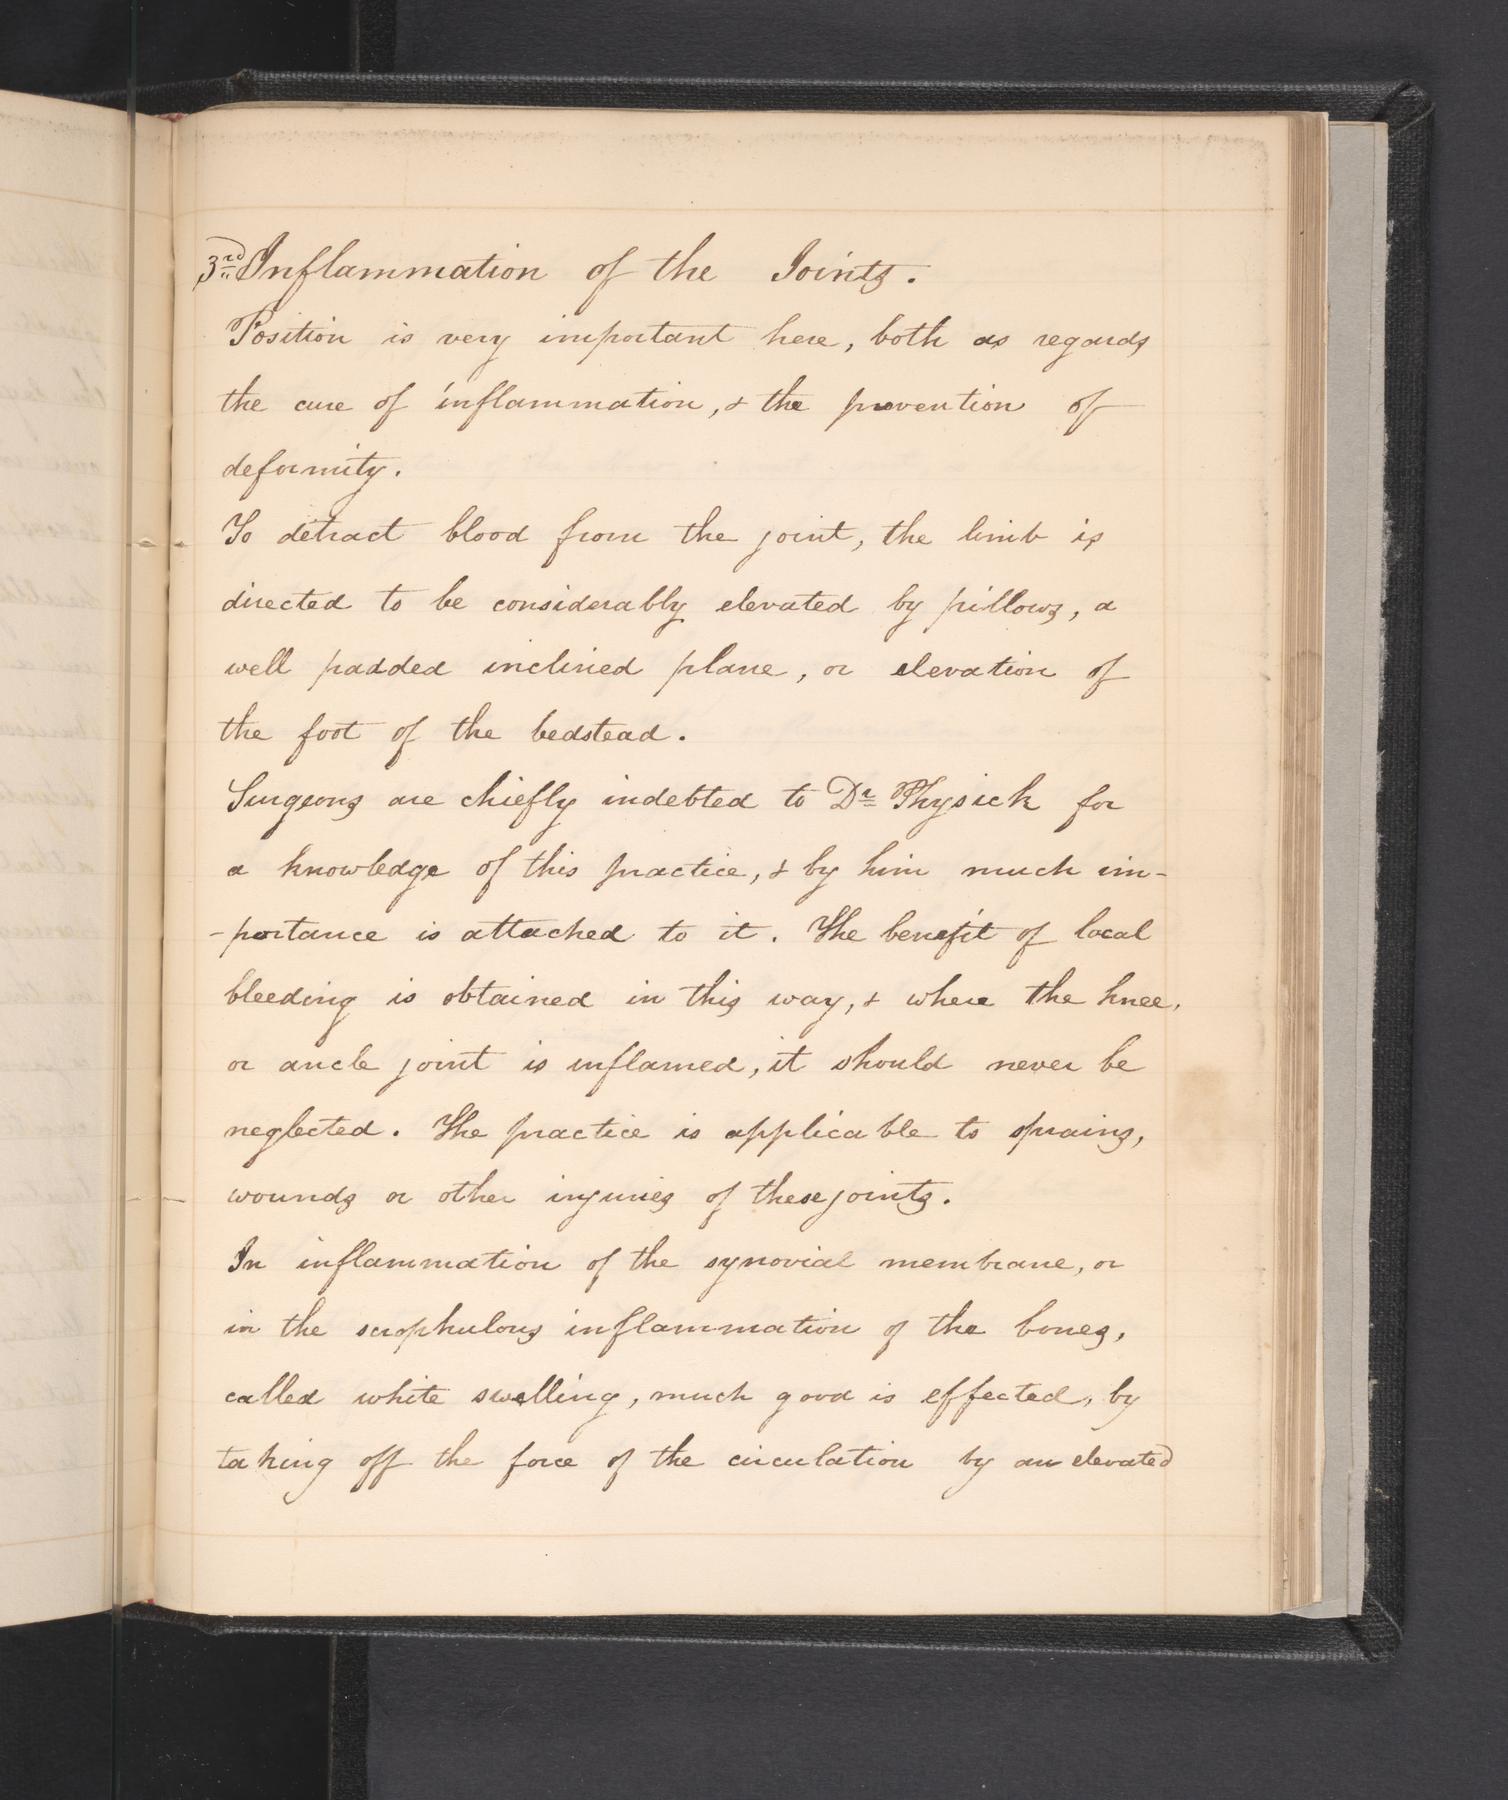 3rd Inflammation of the Joints.
Position is very important here, both as regards
the cure of inflammation, & the prevention of
deformity.
To detract blood from the joint, the limb is
directed to be considerably elevated by pillows, a
well padded inclined plane, or elevation of
the foot of the bedstead.
Surgeons are chiefly indebted to Dr Physick for
a knowledge of this practice, & by him much im-
-portance is attached to it. The benefit of local
bleeding is obtained in this way, & where the knee,
or ancle joint is inflamed, it should never be
neglected. The practice is applicable to sprains,
wounds or other injuries of these joints.
In inflammation of the synovial membrane, or
in the scrophulous inflammation of the bones,
called white swelling, much good is effected, by
taking off the force of the circulation by an elevated